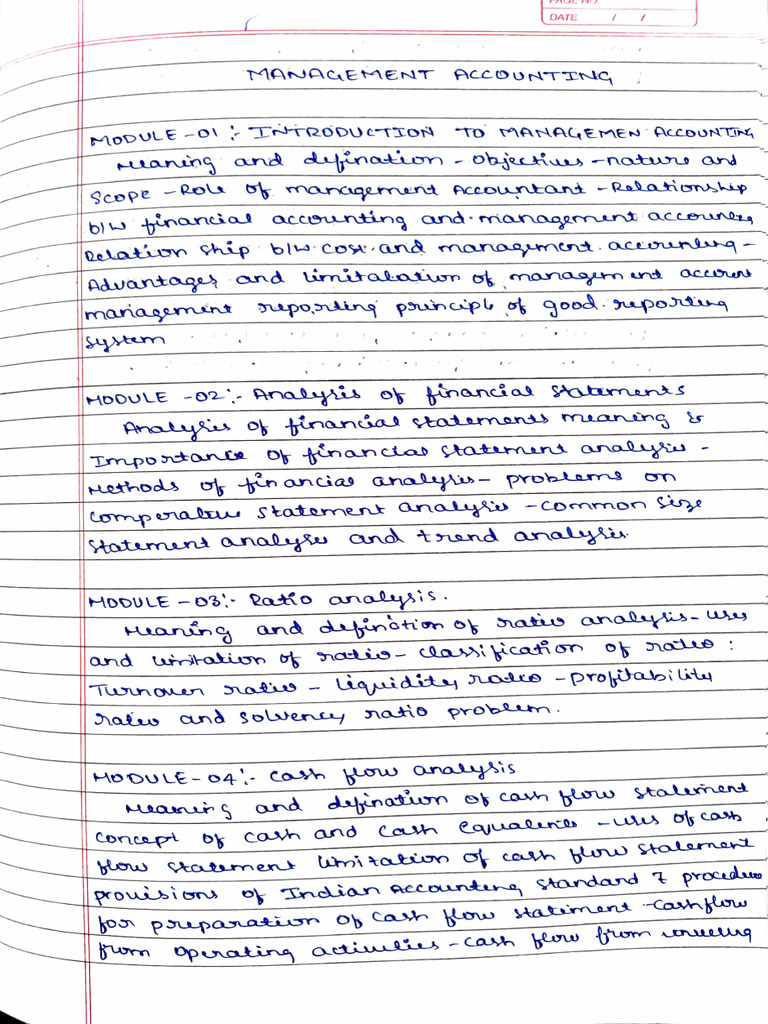 PAGE NO.
DATE / /
MANAGEMENT ACCOUNTING
MODULE -01 :- INTRODUCTION TO MANAGEMEN ACCOUNTING
Meaning and defination - Objectives - nature and
Scope - Role of management Accountant - Relationship
b/w financial accounting and management
Relation ship b/w cost and management accounting -
Advantages and limitalation of management
management reporting principle of good reporting
system
MODULE -02 :- Analysis of financial statements
Analysis of financial statements meaning &
Importance of financial statement analysis -
Methods of financial analysis - problems on
comperative statement analysis - common size
statement analysis and trend analysis.
MODULE -03 :- Ratio analysis.
Meaning and defination of ratio analysis - uses
and limitation of ratio - classification of ratio :
Turnover ratio - liquidity ratio - profitability
ratio and solvency ratio problem.
MODULE -04 :- cash flow analysis
Meaning and defination of cash flow statement
concept of cash and cash - uses of cash
flow statement limitation of cash flow statement
provisions of Indian Accounting standard 7
for preparation of cash flow statement - cashflow
from operating activities - cash flow from